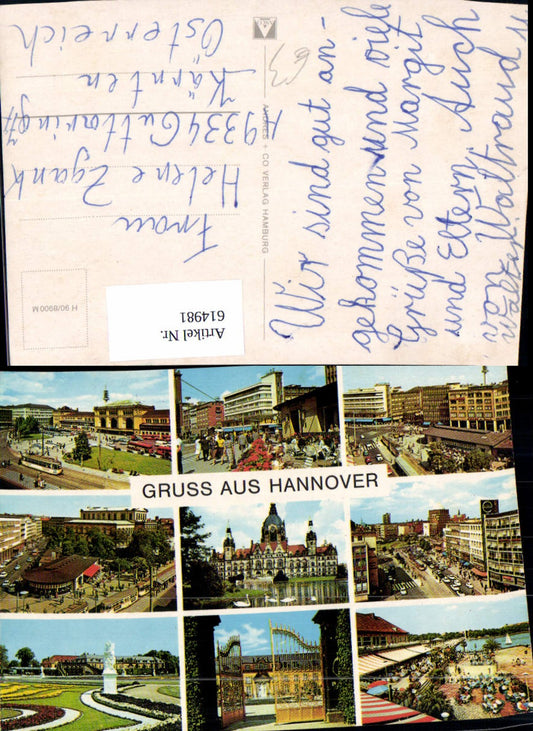 Wir sind gut an-
gekommen und viele
Grüße von Margit
und Eltern. Auch
Waltraud u
63
ANDRES + CO VERLAG HAMBURG
Frau
Helene Zgank
A 9334 Guttaring 7
Kärnten
Österreich
H 90/8900 M
Artikel Nr.
614981
GRUSS AUS HANNOVER